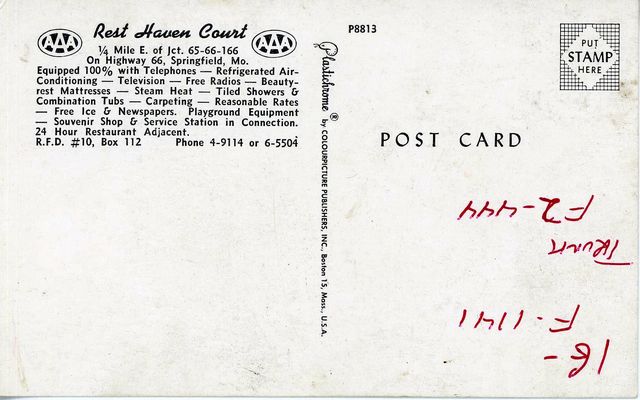 AAA
Rest Haven Court
AAA
¼ Mile E. of Jct. 65-66-166
On Highway 66, Springfield, Mo.
Equipped 100% with Telephones — Refrigerated Air-
Conditioning — Television — Free Radios — Beauty-
rest Mattresses — Steam Heat — Tiled Showers &
Combination Tubs — Carpeting — Reasonable Rates
— Free Ice & Newspapers. Playground Equipment
— Souvenir Shop & Service Station in Connection.
24 Hour Restaurant Adjacent.
R.F.D. #10, Box 112 Phone 4-9114 or 6-5504
P8813
Plastichrome ® by COLOURPICTURE PUBLISHERS, INC., Boston 15, Mass., U.S.A.
PUT
STAMP
HERE
POST CARD
18-
F-1141
Trunk
F2-444